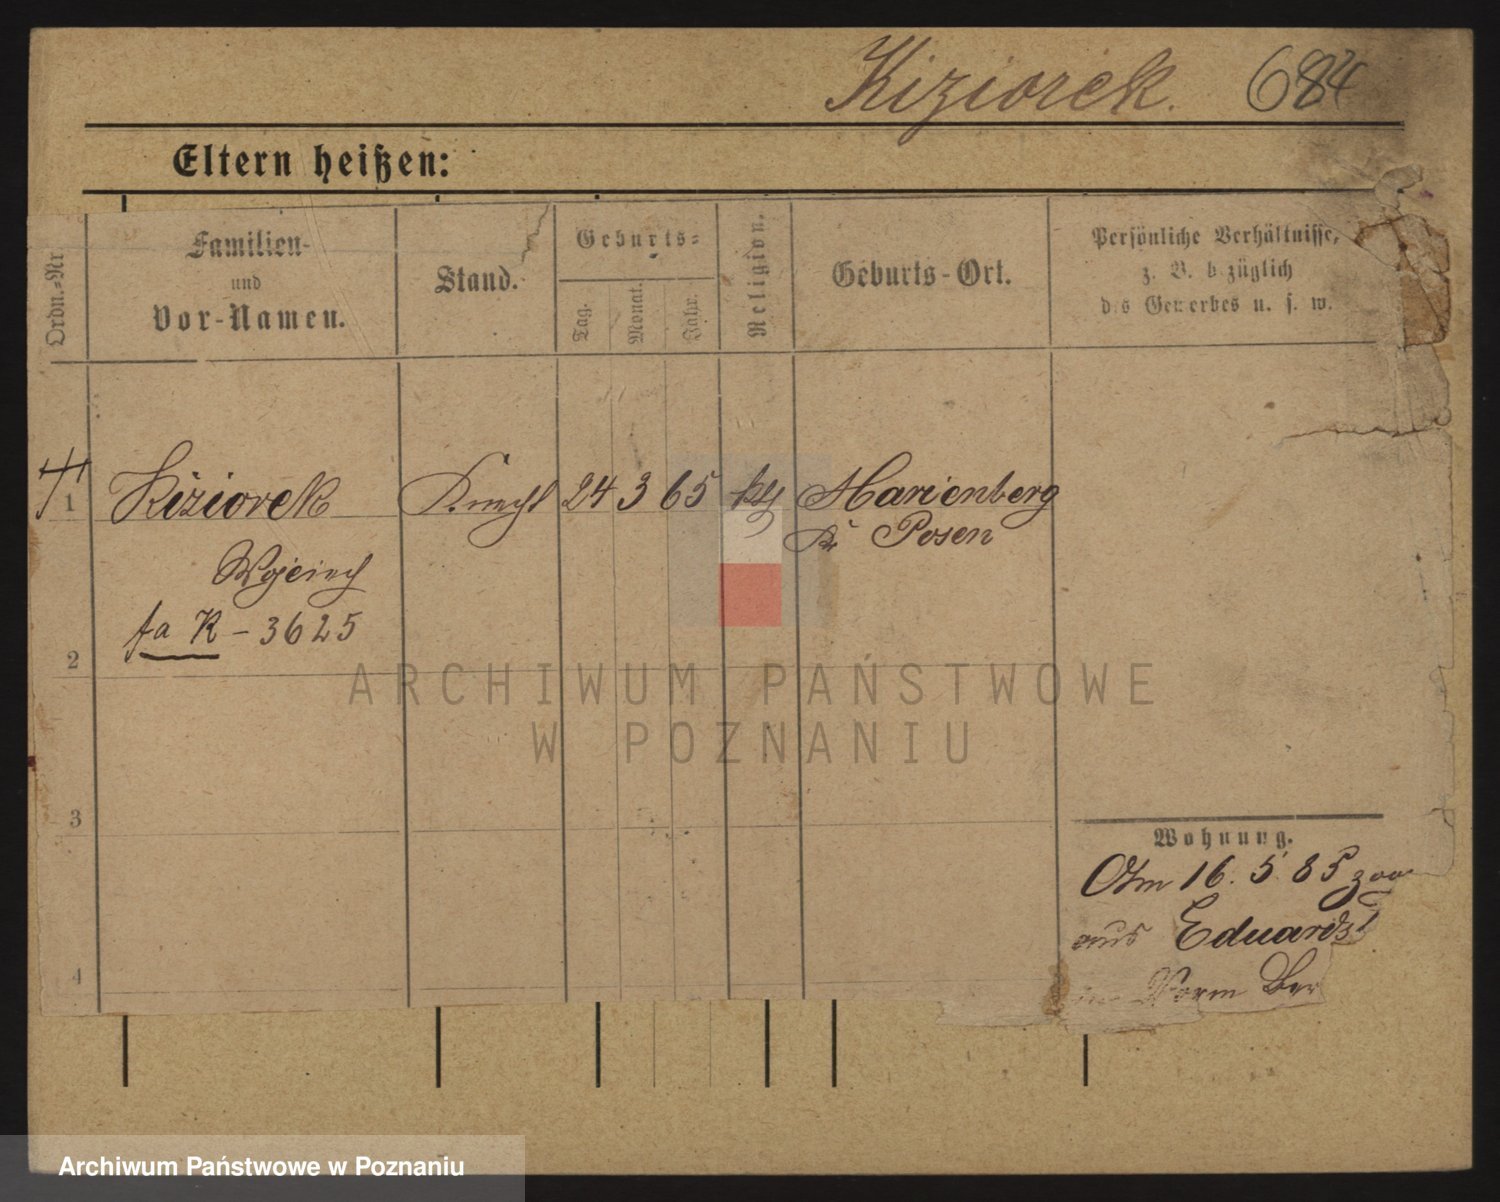 Kiziorek. 684
Eltern heißen:
Ordn.-Nr
Familien-
und
Vor-Namen.
Stand.
Geburts-
Tag.
Monat.
Jahr.
Religion.
Geburts-Ort.
Persönliche Verhältnisse,
z. B. bezüglich
des Gewerbes u. s. w.
1 Kiziorek Knecht 24 3 65 kth Marienberg
Kr Posen
Wojciech
fa K - 3625
2
3
4
Wohnung.
Am 16. 5. 85 zoo
aus Eduardsf
Vorm Ber
ARCHIWUM PAŃSTWOWE
W POZNANIU
Archiwum Państwowe w Poznaniu